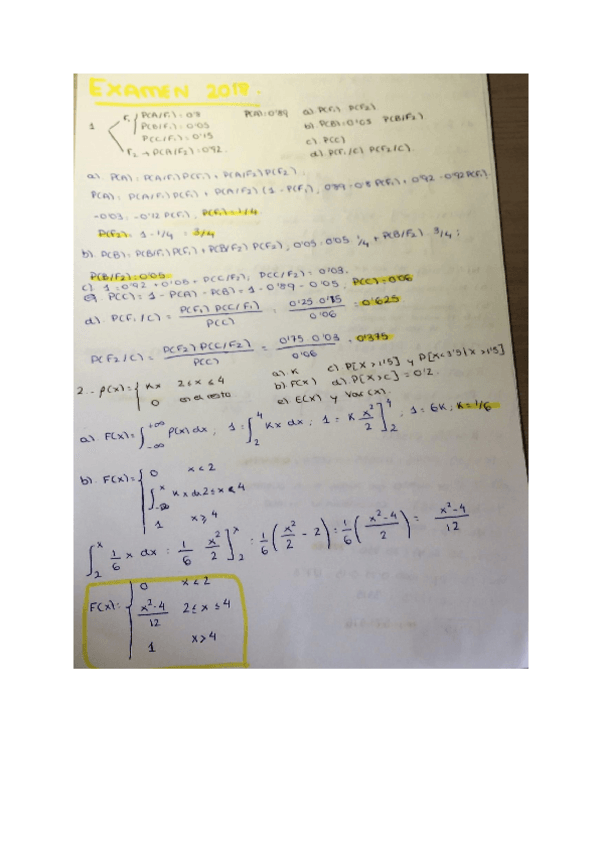 EXAMEN 2018.
1 F₁ { P(A/F₁) = 0'8 P(A) = 0'89 a). P(F₁) P(F₂)
P(B/F₁) = 0'05 b). P(B) = 0'05 P(B/F₂)
P(C/F₁) = 0'15 c). P(C)
F₂ → P(A/F₂) = 0'92. d). P(F₁/C) P(F₂/C).
a). P(A) = P(A/F₁) P(F₁) + P(A/F₂) P(F₂).
P(A) = P(A/F₁) P(F₁) + P(A/F₂) (1 - P(F₁); 0'89 = 0'8 P(F₁) + 0'92 - 0'92 P(F₁)
-0'03 = -0'12 P(F₁), P(F₁) = 1/4
P(F₂) = 1 - 1/4 = 3/4
b). P(B) = P(B/F₁) P(F₁) + P(B/F₂) P(F₂); 0'05 = 0'05 1/4 + P(B/F₂) 3/4;
P(B/F₂) = 0'05
c). 1 = 0'92 + 0'05 + P(C/F₂); P(C/F₂) = 0'03.
P(C) = 1 - P(A) - P(B) = 1 - 0'89 - 0'05; P(C) = 0'06
d). P(F₁/C) = P(F₁) P(C/F₁) / P(C) = 0'25 0'15 / 0'06 = 0'625
P(F₂/C) = P(F₂) P(C/F₂) / P(C) = 0'75 0'03 / 0'06 = 0'375
2.- p(x) = { Kx 2 ≤ x ≤ 4 a). K c) P[X > 1'5] y P[X < 3'5 | X > 1'5]
0 en el resto b). F(x) d). P[X > c] = 0'2.
e). E(X) y Var(X).
a). F(x) = ∫_{-∞}^{+∞} p(x) dx; 1 = ∫_2^4 Kx dx; 1 = K x²/2 ]_2^4; 1 = 6K; K = 1/6
b). F(x) = { 0 x < 2
∫_{-∞}^x Kx dx 2 ≤ x ≤ 4
1 x ≥ 4
∫_2^x 1/6 x dx = 1/6 x²/2 ]_2^x = 1/6 (x²/2 - 2) = 1/6 (x²-4 / 2) = x²-4 / 12
F(x) = { 0 x < 2
x²-4 / 12 2 ≤ x ≤ 4
1 x > 4